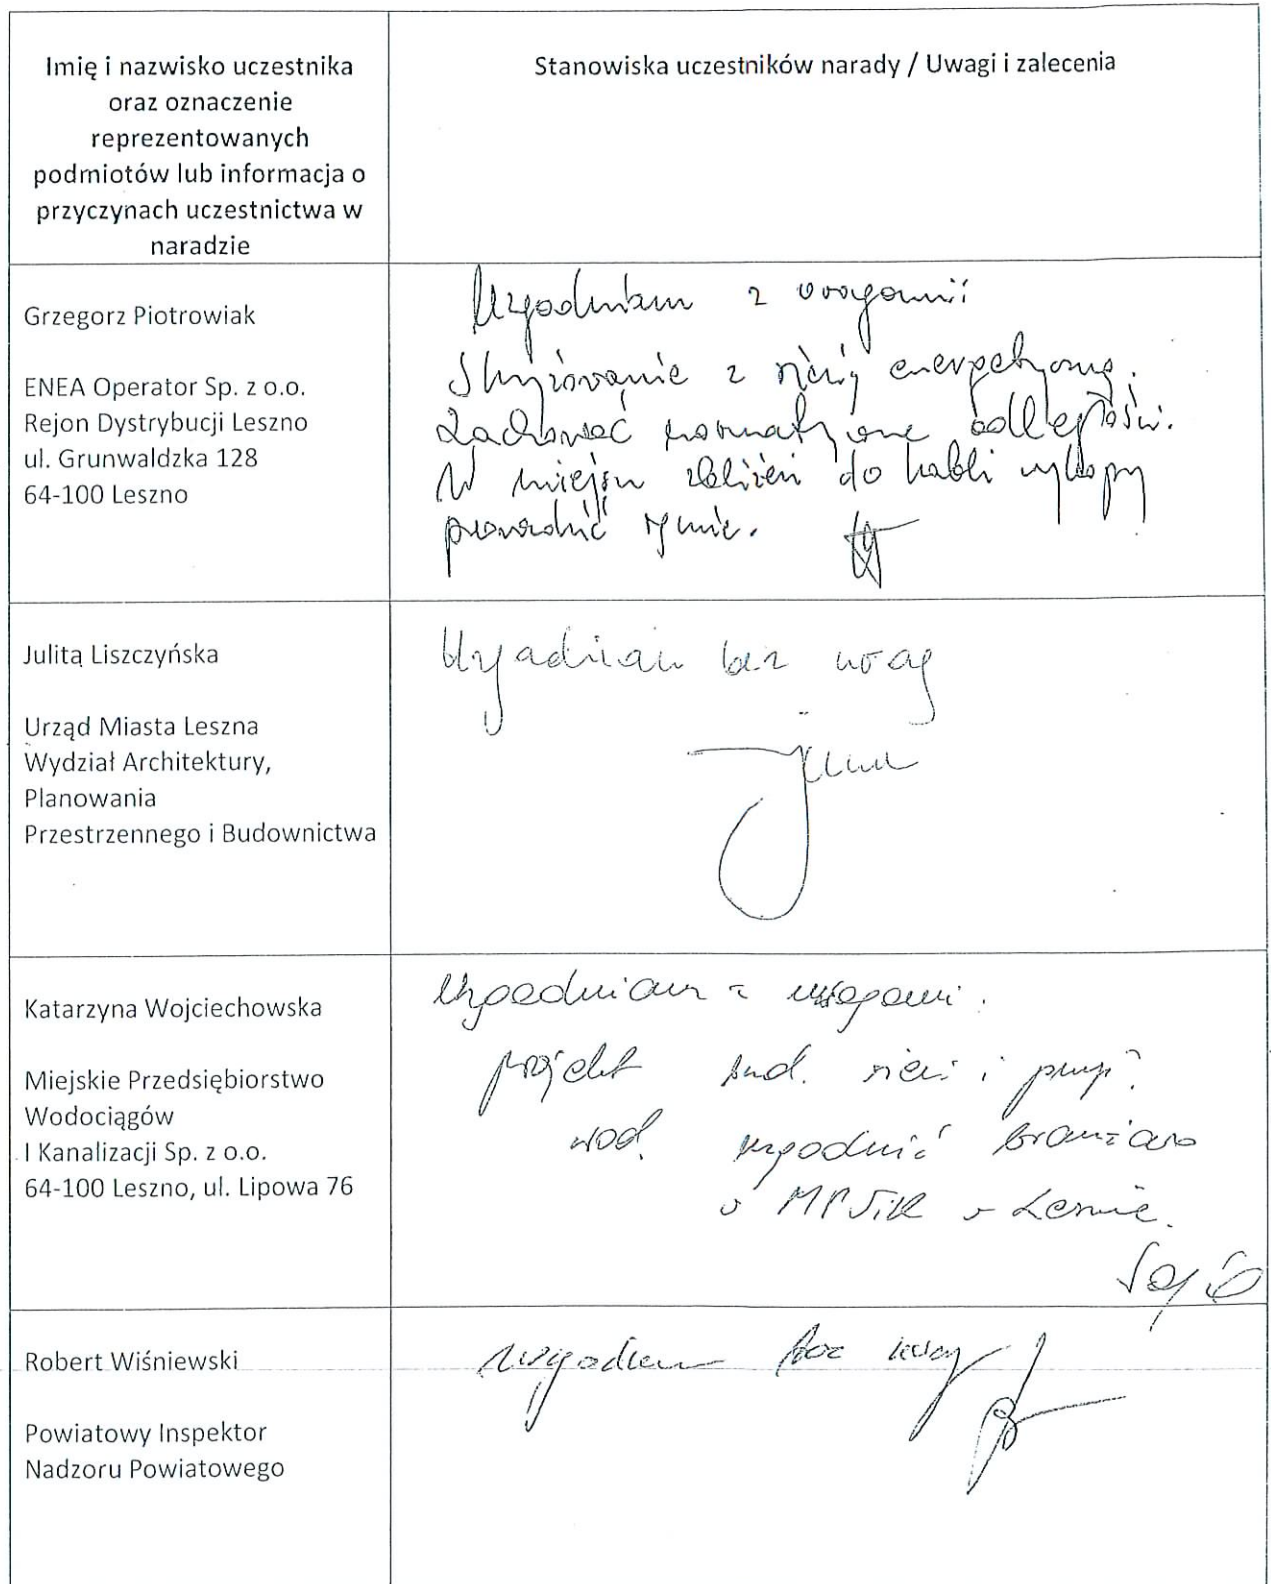 Imię i nazwisko uczestnika
oraz oznaczenie
reprezentowanych
podmiotów lub informacja o
przyczynach uczestnictwa w
naradzie
Stanowiska uczestników narady / Uwagi i zalecenia
Grzegorz Piotrowiak
ENEA Operator Sp. z o.o.
Rejon Dystrybucji Leszno
ul. Grunwaldzka 128
64-100 Leszno
Uzgodniłam z uwagami:
Skrzyżowanie z siecią energetyczną.
Zachować normatywne odległości.
W miejscu zbliżeń do kabli wykopy
prowadzić ręcznie.
Julita Liszczyńska
Urząd Miasta Leszna
Wydział Architektury,
Planowania
Przestrzennego i Budownictwa
Uzgadniam bez uwag
Katarzyna Wojciechowska
Miejskie Przedsiębiorstwo
Wodociągów
I Kanalizacji Sp. z o.o.
64-100 Leszno, ul. Lipowa 76
Uzgadniam z uwagami.
projekt bud. sieci i przył.
wod. uzgodnić branżowo
w MPWiK w Lesznie.
Robert Wiśniewski
Powiatowy Inspektor
Nadzoru Powiatowego
uzgadniam bez uwag